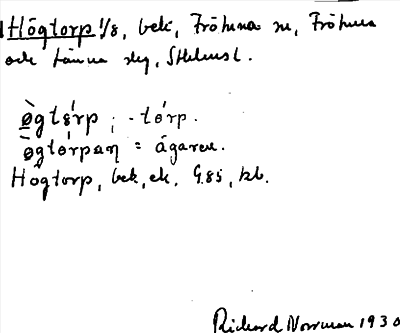 Högtorp 1/8, bek, Fröhuna m, Fröhuna
och Länna skg, Sthlmsl.
ø̀gtórp ; -tórp.
ø̀gtórpaη = ägaren.
Högtorp, bek, ek, G.85, kb.
Richard Norrman 1930